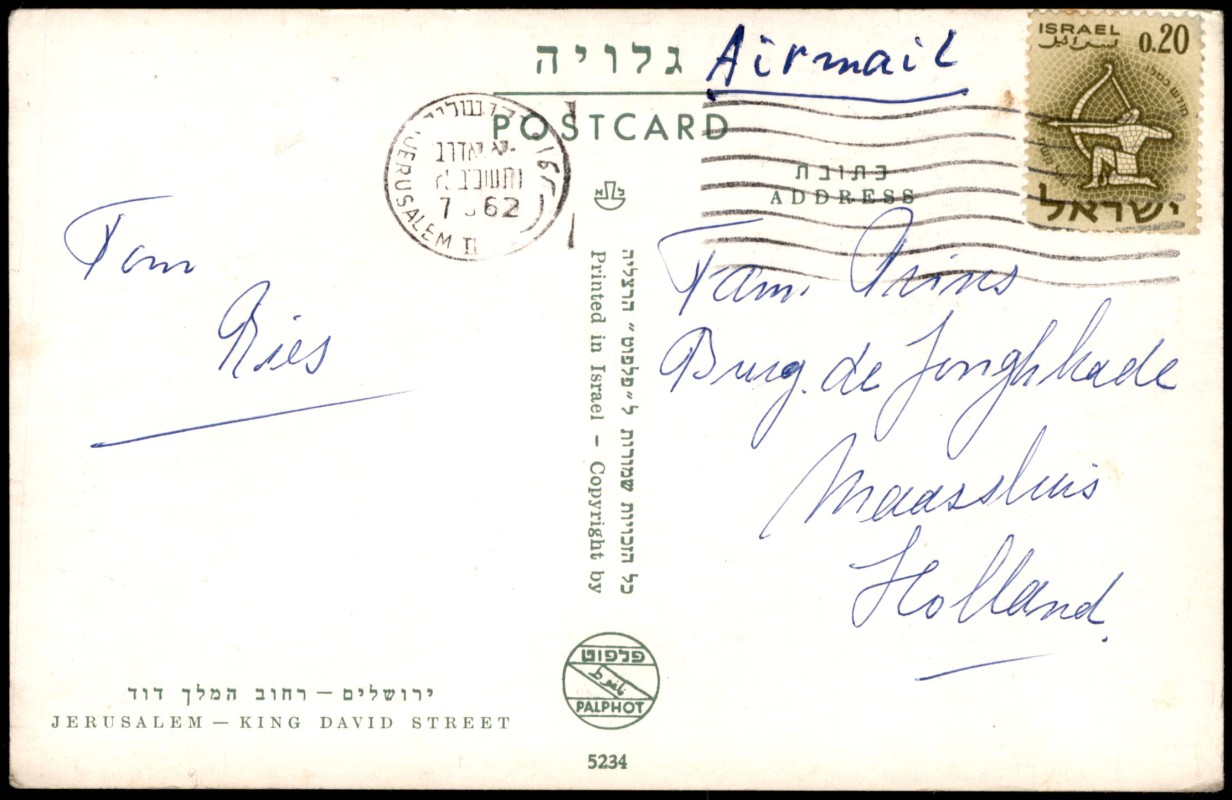 גלויה
Airmail
POSTCARD
ISRAEL
0.20
اسرائيل
ישראל
JERUSALEM
7 62
כתובת
ADDRESS
Fam
Ries
Fam. Prins
Burg. de Jonghkade
Maassluis
Holland.
כל הזכויות שמורות ל״פלפוט״ הרצליה
Printed in Israel – Copyright by
פלפוט
بالفوط
PALPHOT
5234
ירושלים – רחוב המלך דוד
JERUSALEM – KING DAVID STREET